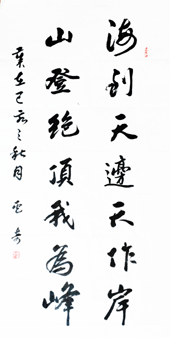 海到天邊天作岸
山登絶頂我為峰
歲在己亥之秋月